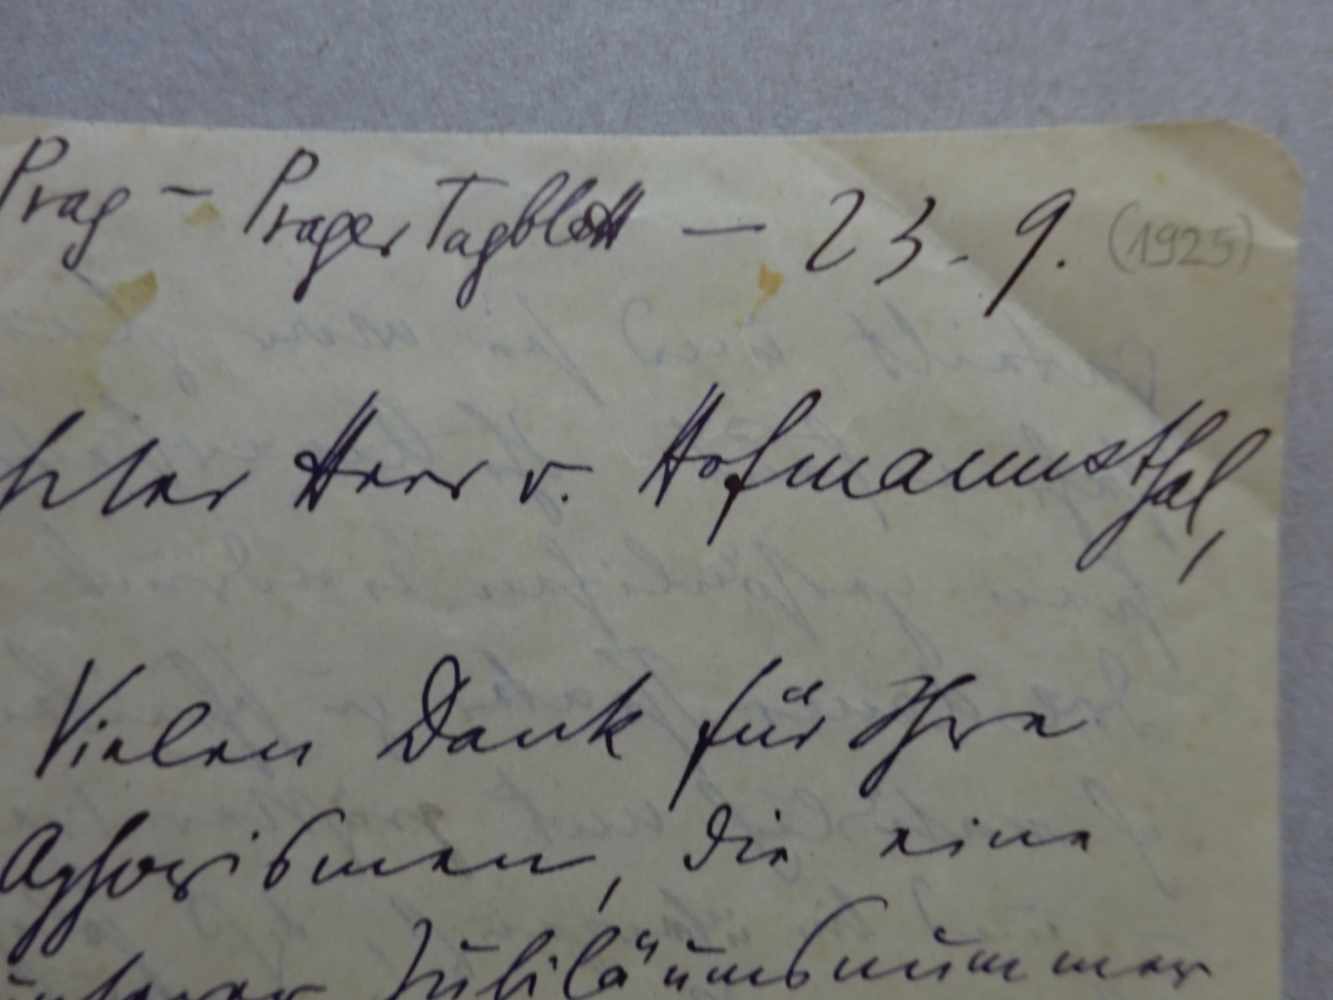 Prag – Prager Tagblatt – 23. 9. (1925)
Herr v. Hofmannsthal,
Vielen Dank für Ihre
Aphorismen, die eine
unserer Jubiläumsnummer